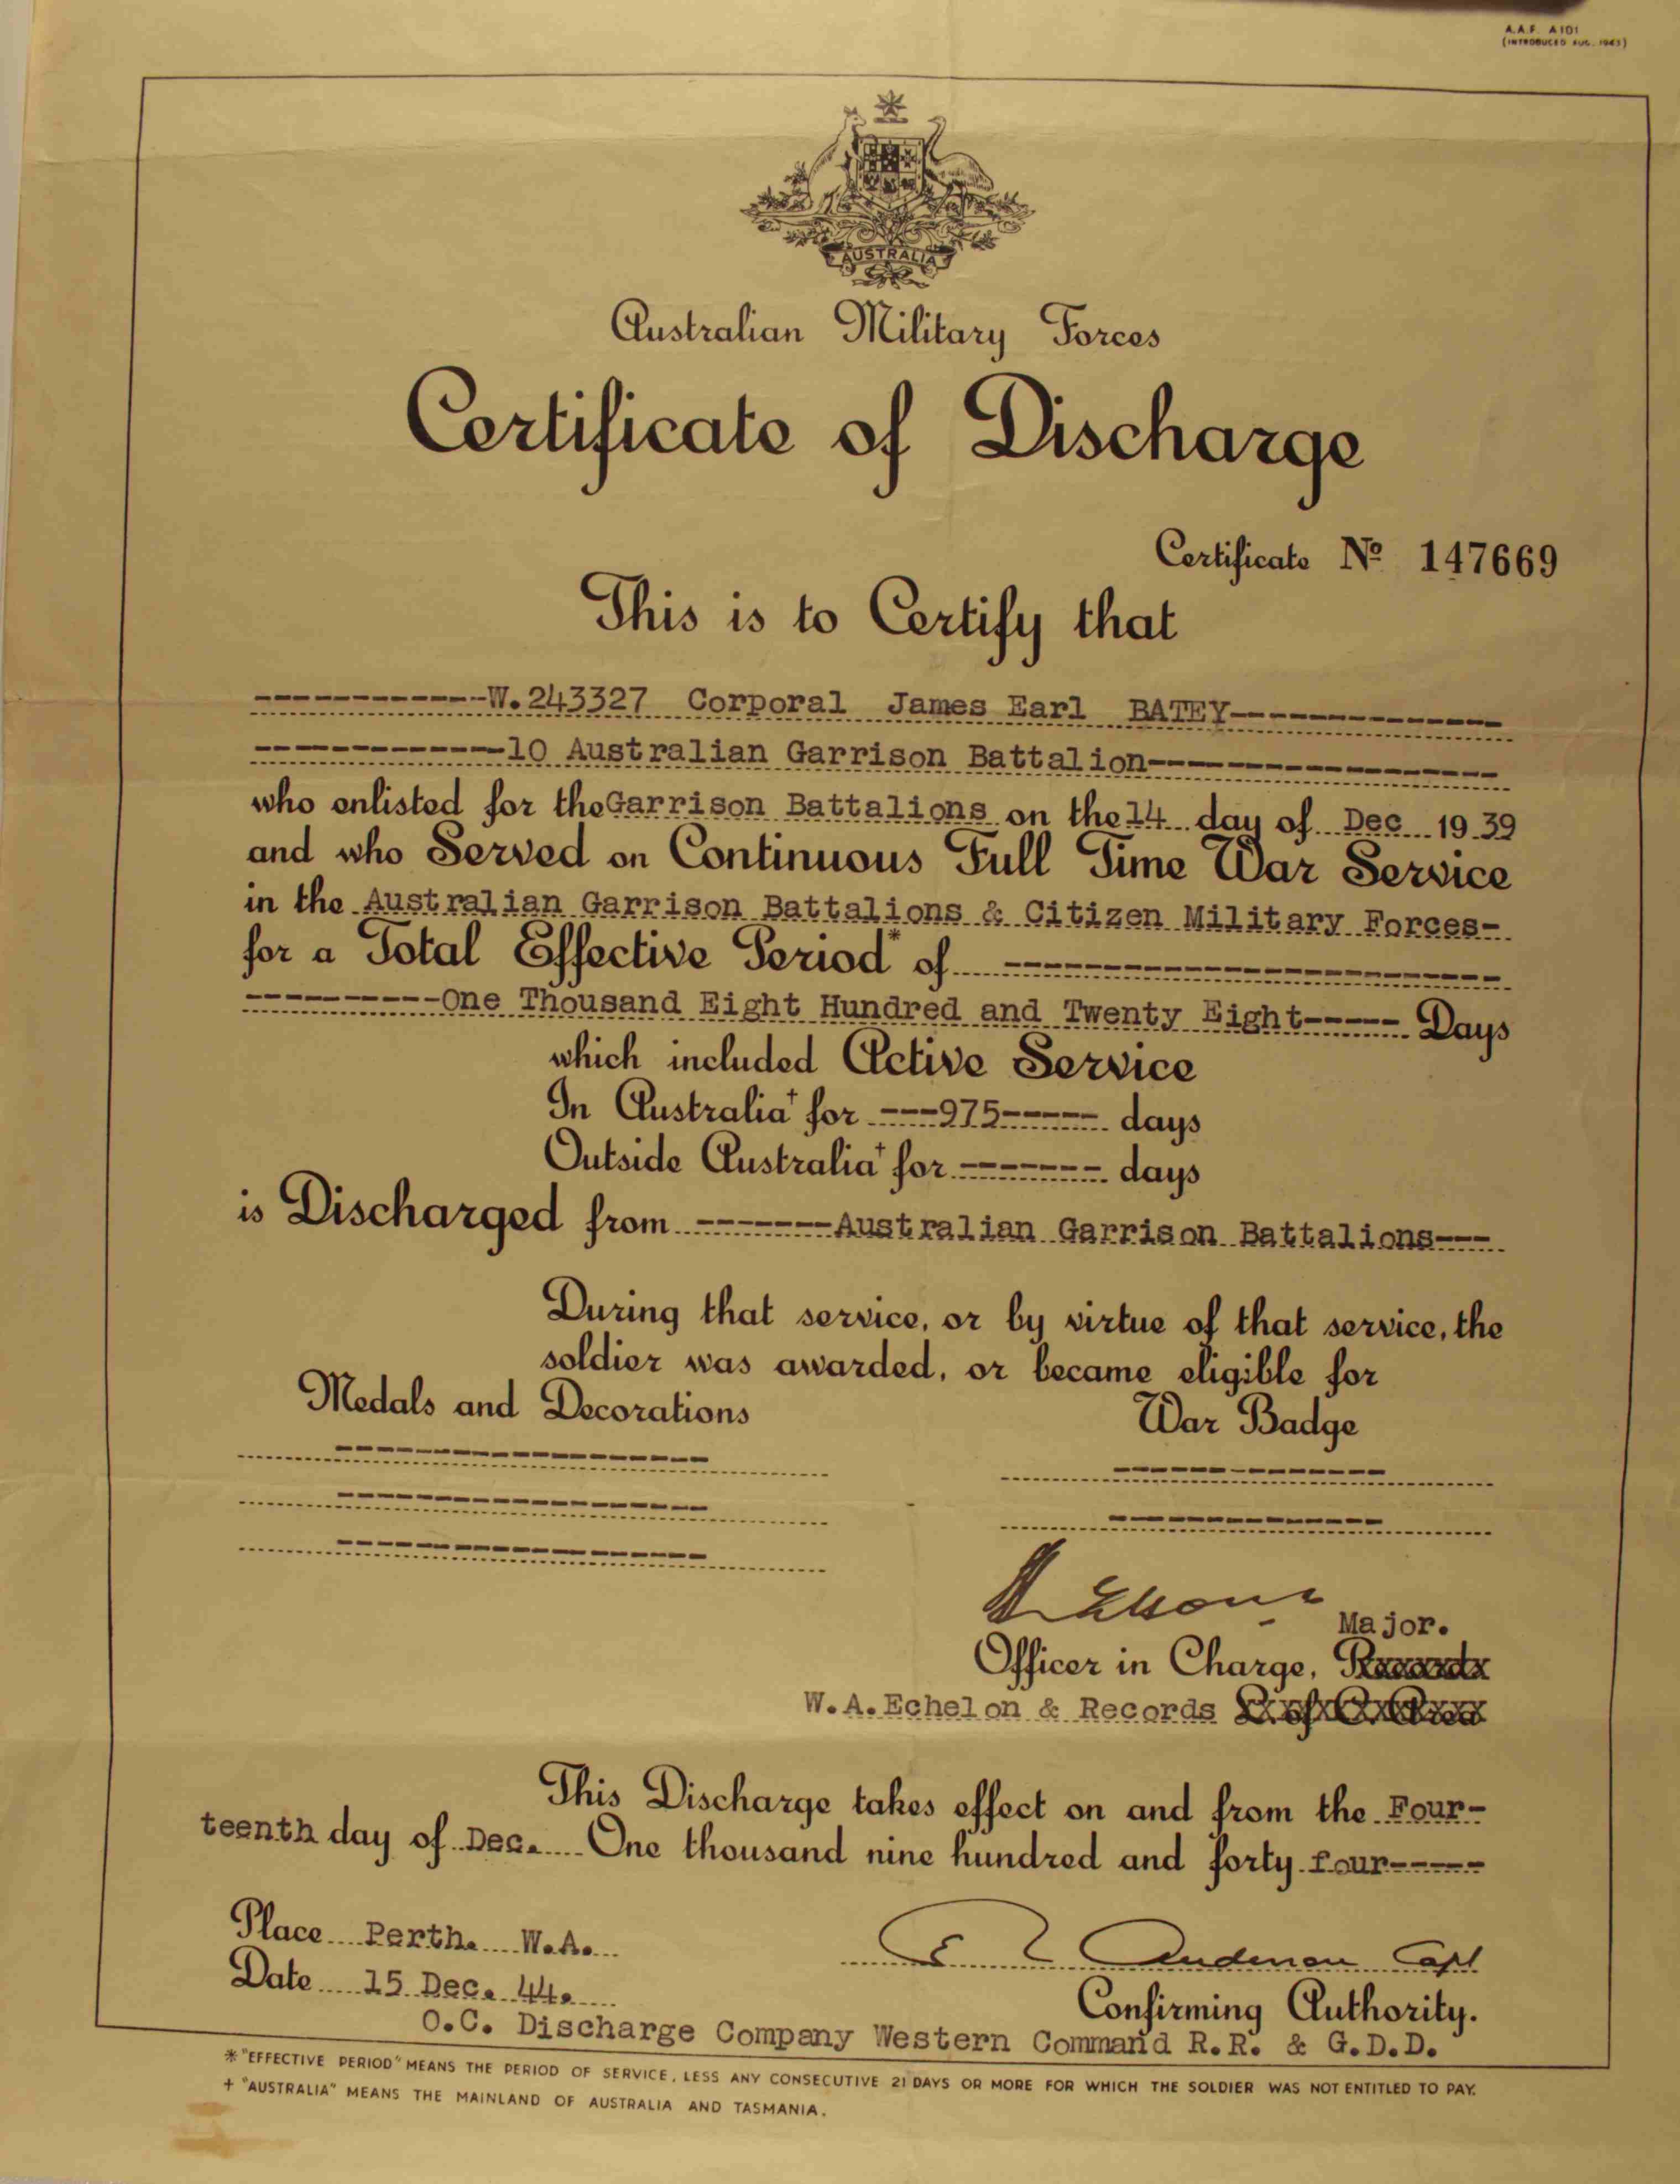 A.A.F. A101
(INTRODUCED AUG. 1943)
AUSTRALIA
Australian Military Forces
Certificate of Discharge
Certificate Nº 147669
This is to Certify that
------------W.243327 Corporal James Earl BATEY--------------
-------------10 Australian Garrison Battalion------------------
who enlisted for the Garrison Battalions on the 14 day of Dec 1939
and who Served on Continuous Full Time War Service
in the Australian Garrison Battalions & Citizen Military Forces-
for a Total Effective Period* of -------------------------
----------One Thousand Eight Hundred and Twenty Eight----- Days
which included Active Service
In Australia+ for ---975----- days
Outside Australia+ for ------- days
is Discharged from -------Australian Garrison Battalions---
During that service, or by virtue of that service, the
soldier was awarded, or became eligible for
Medals and Decorations War Badge
Major.
Officer in Charge, Records
W.A. Echelon & Records L. of C. Area
This Discharge takes effect on and from the Four-
teenth day of Dec. One thousand nine hundred and forty four-----
Place Perth. W.A.
Date 15 Dec. 44.
Anderson Capt
Confirming Authority.
O.C. Discharge Company Western Command R.R. & G.D.D.
* "EFFECTIVE PERIOD" MEANS THE PERIOD OF SERVICE, LESS ANY CONSECUTIVE 21 DAYS OR MORE FOR WHICH THE SOLDIER WAS NOT ENTITLED TO PAY.
+ "AUSTRALIA" MEANS THE MAINLAND OF AUSTRALIA AND TASMANIA.